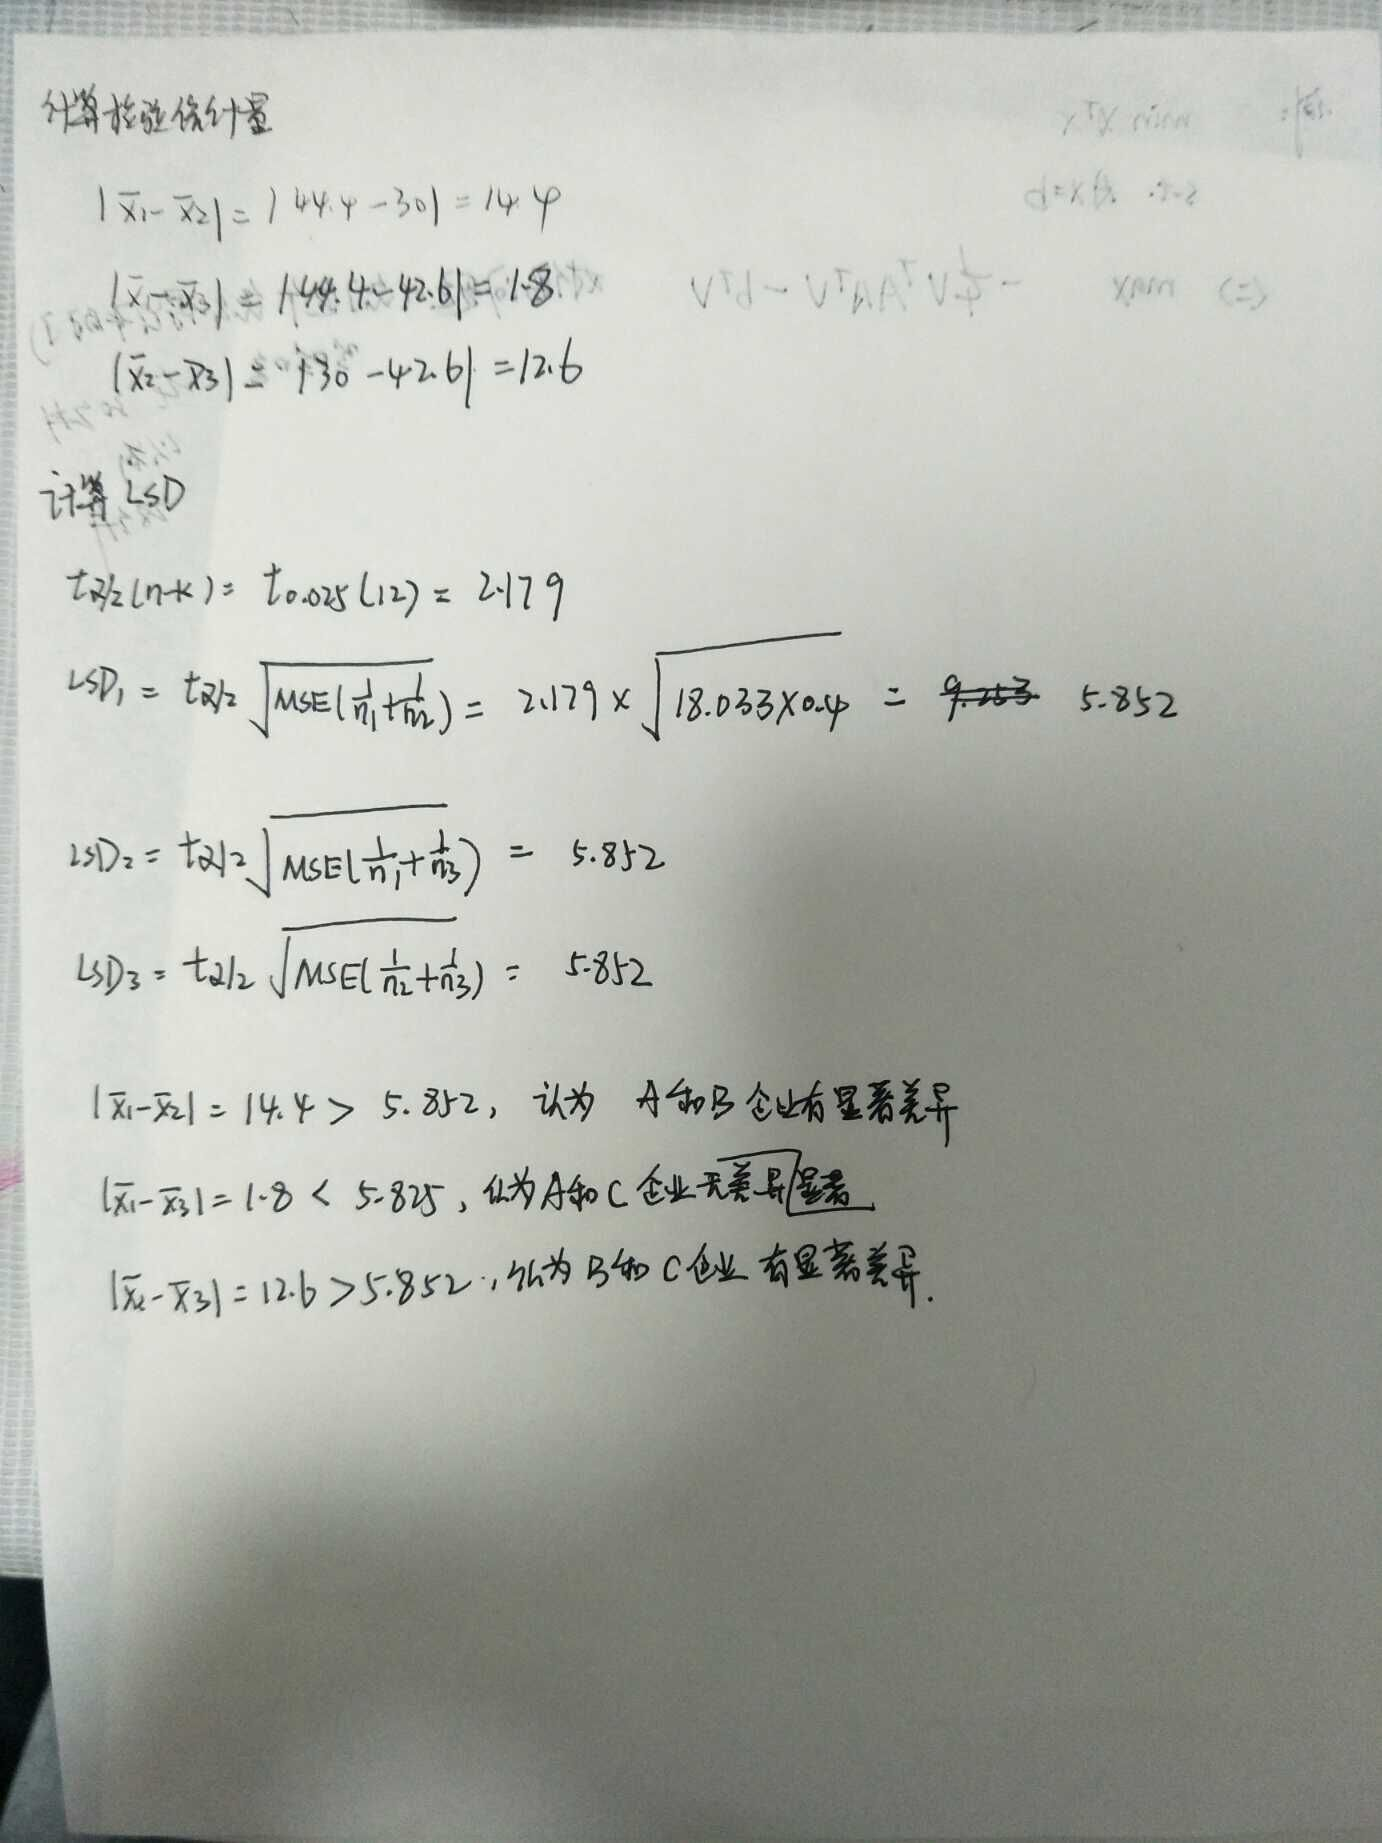 计算检验统计量
|x̄₁-x̄₂| = |44.4-30| = 14.4
|x̄₁-x̄₃| = |44.4-42.6| = 1.8
|x̄₂-x̄₃| = |30-42.6| = 12.6
计算 LSD
t_{α/2}(n-k) = t_{0.025}(12) = 2.179
LSD₁ = t_{α/2} √MSE(1/n₁+1/n₂) = 2.179 × √18.033×0.4 = 5.852
LSD₂ = t_{α/2} √MSE(1/n₁+1/n₃) = 5.852
LSD₃ = t_{α/2} √MSE(1/n₂+1/n₃) = 5.852
|x̄₁-x̄₂| = 14.4 > 5.852, 认为 A和B 企业有显著差异
|x̄₁-x̄₃| = 1.8 < 5.825, 认为A和C 企业无差异显著
|x̄₂-x̄₃| = 12.6 > 5.852, 认为 B和C企业 有显著差异.